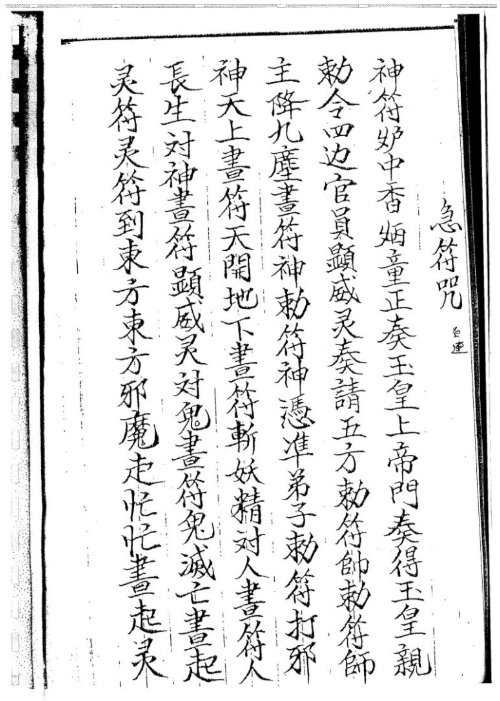 急符咒
神符炉中香烟童正奏玉皇上帝門奏得玉皇親
勅令四边官員顯威灵奏請五方勅符師勅符師
主降九塵畫符神勅符神憑准弟子勅符打邪
神大上畫符天開地下畫符斬妖精对人畫符人
長生对神畫符顯威灵对鬼畫符鬼滅亡畫起
灵符灵符到東方東方邪魔走忙忙畫起灵